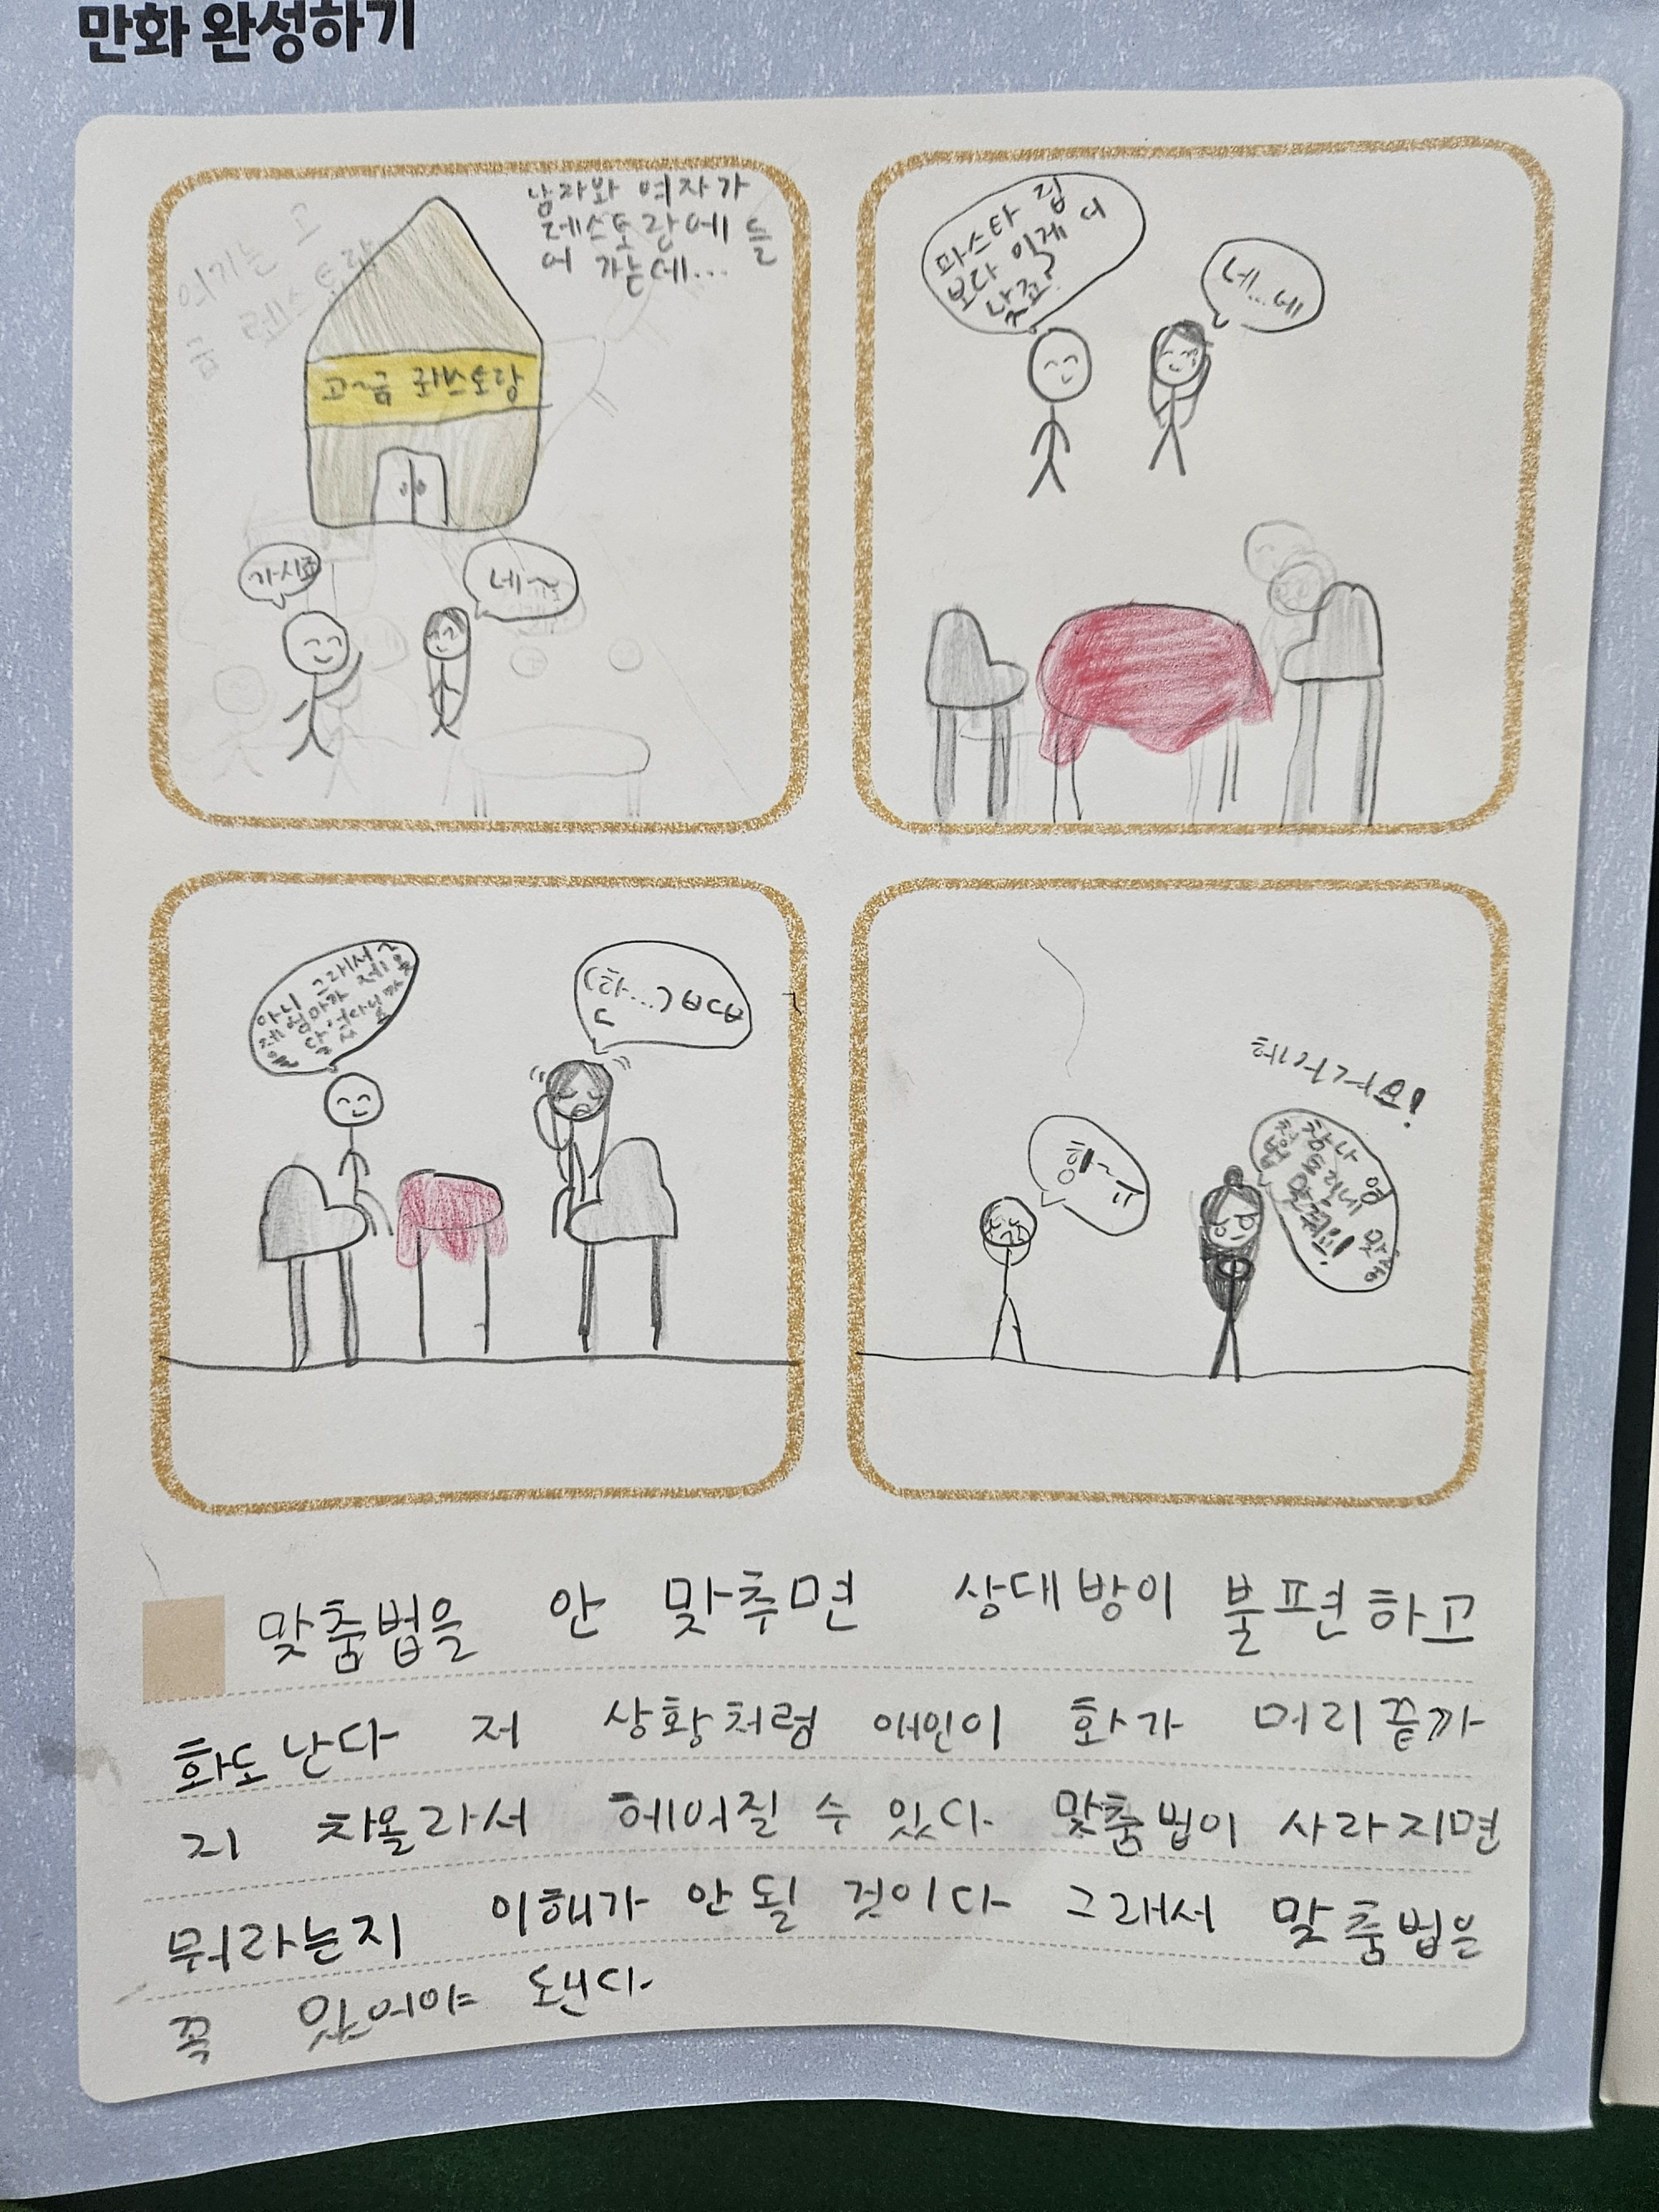 만화 완성하기
남자와 여자가
레스토랑에 들
어 갔는데...
여기는 고
급 레스토랑
고~급 레스토랑
가시죠
네~
파스타 집
보다 이게 더
낫죠?
네...네
아니 그래서
제 엄마가
맞춤법을 안 맞추면 상대방이 불편하고
화도 난다 저 상황처럼 애인이 화가 머리끝까
지 차올라서 헤어질 수 있다 맞춤법이 사라지면
뭐라는지 이해가 안 될 것이다 그래서 맞춤법은
꼭 있어야 됀다